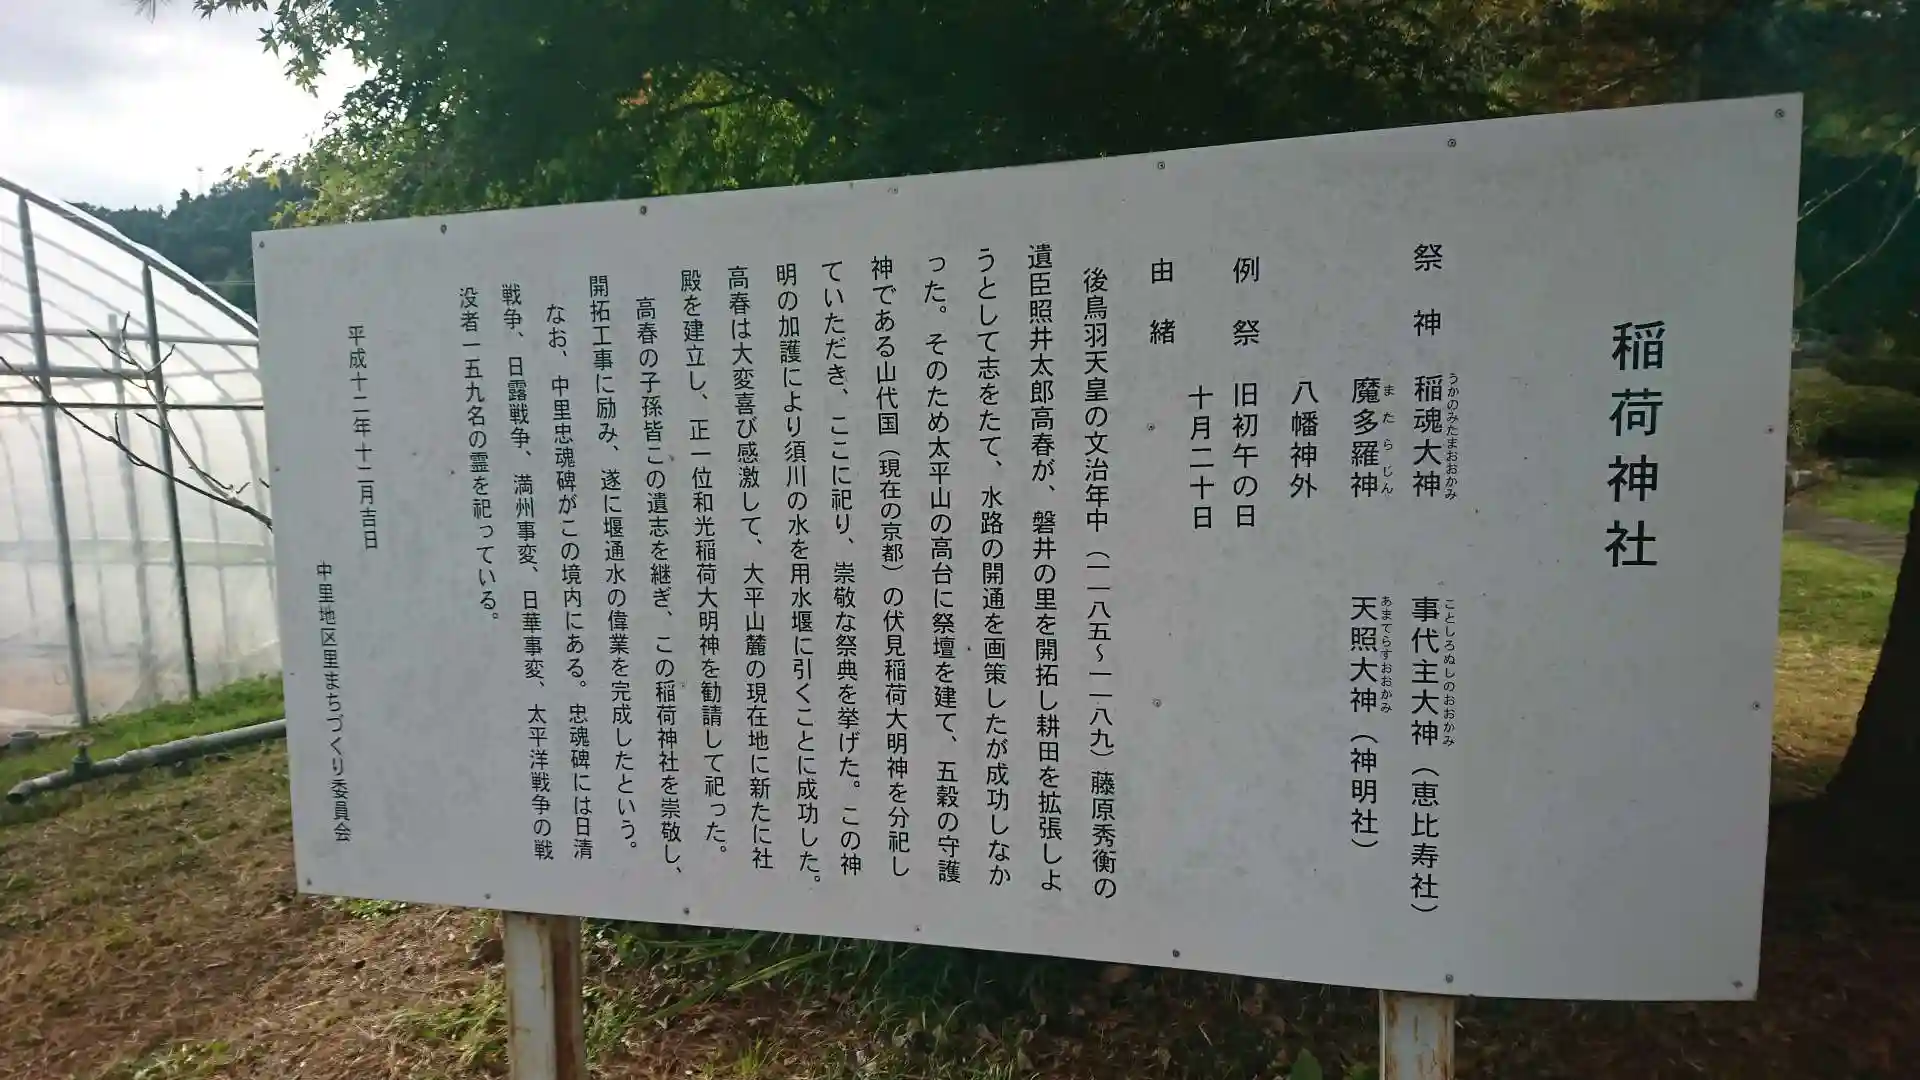 稲荷神社
祭神 稲魂大神 事代主大神（恵比寿社）
うかのみたまおおかみ ことしろぬしのおおかみ
魔多羅神 天照大神（神明社）
またらじん あまてらすおおかみ
八幡神外
例祭 旧初午の日
十月二十日
由緒
後鳥羽天皇の文治年中（一一八五〜一一八九）藤原秀衡の
遺臣照井太郎高春が、磐井の里を開拓し耕田を拡張しよ
うとして志をたて、水路の開通を画策したが成功しなか
った。そのため太平山の高台に祭壇を建て、五穀の守護
神である山代国（現在の京都）の伏見稲荷大明神を分祀し
ていただき、ここに祀り、崇敬な祭典を挙げた。この神
明の加護により須川の水を用水堰に引くことに成功した。
高春は大変喜び感激して、大平山麓の現在地に新たに社
殿を建立し、正一位和光稲荷大明神を勧請して祀った。
高春の子孫皆この遺志を継ぎ、この稲荷神社を崇敬し、
開拓工事に励み、遂に堰通水の偉業を完成したという。
なお、中里忠魂碑がこの境内にある。忠魂碑には日清
戦争、日露戦争、満州事変、日華事変、太平洋戦争の戦
没者一五九名の霊を祀っている。
平成十二年十二月吉日
中里地区里まちづくり委員会